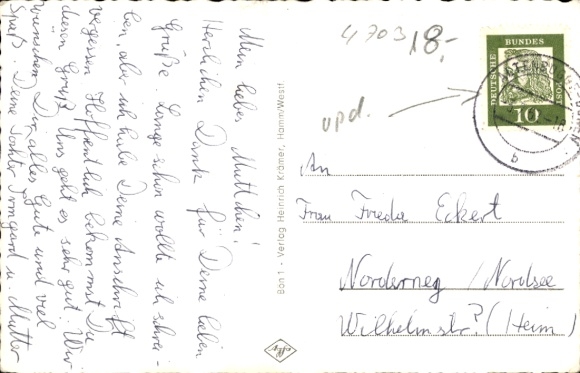 Mein liebes Muttchen!
Herzlichen Dank für Deine lieben
Grüße. Lange schon wollte ich schrei-
ben, aber ich habe Deine Anschrift
vergessen. Hoffentlich bekommst Du
diesen Gruß. Uns geht es sehr gut. Wir
wünschen Dir alles Gute und viel
Spaß. Deine Tochter Irmgard u. Mutter
Bon 1 - Verlag Heinrich Krämer, Hamm/Westf
4703
18,-
upd.
DEUTSCHE
BUNDES
POST
10
b
An
Frau Frieda Eckert
Norderney / Nordsee
Wilhelmstr? (Heim)